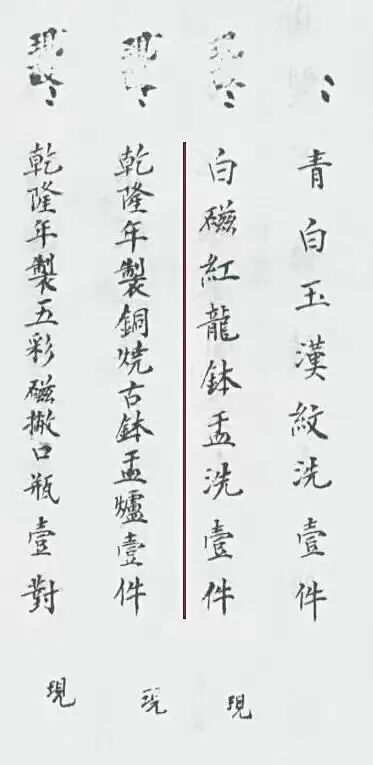 青白玉漢紋洗壹件
白磁紅龍鉢盂洗壹件
現
乾隆年製銅燒古鉢盂爐壹件
現
乾隆年製五彩磁撇口瓶壹對
現